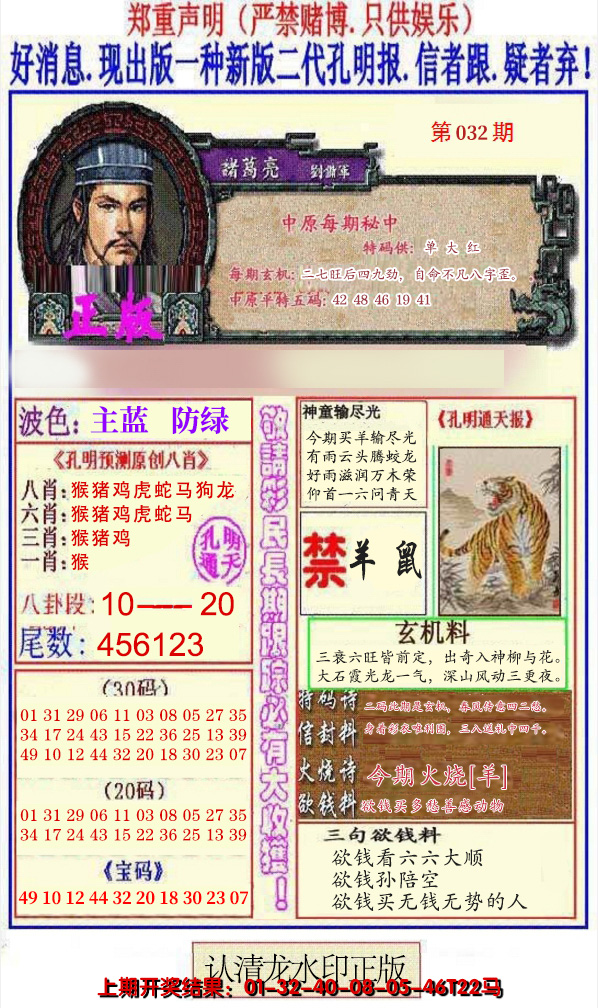 郑重声明（严禁赌博.只供娱乐）
好消息.现出版一种新版二代孔明报.信者跟.疑者弃！
第 032 期
諸葛亮 劉備軍
中原每期秘中
特码供: 单 大 红
每期玄机: 二七旺后四九劲，自命不凡八字歪。
中原平特五码: 42 48 46 19 41
正版
波色: 主蓝 防绿
《孔明预测原创八肖》
八肖:猴猪鸡虎蛇马狗龙
六肖:猴猪鸡虎蛇马
三肖:猴猪鸡
一肖:猴
孔明
通天
八卦段: 10—— 20
尾数: 456123
敬請彩民長期跟踪必有大收獲！
神童输尽光
今期买羊输尽光
有雨云头腾蛟龙
好雨滋润万木荣
仰首一六问青天
《孔明通天报》
禁羊 鼠
玄机料
三衰六旺皆前定，出奇入神柳与花。
大石霞光龙一气，深山风动三更夜。
（30码）
01 31 29 06 11 03 08 05 27 35
34 17 24 43 15 22 36 25 13 39
49 10 12 44 32 20 18 30 23 07
（20码）
01 31 29 06 11 03 08 05 27 35
34 17 24 43 15 22 36 25 13 39
《宝码》
49 10 12 44 32 20 18 30 23 07
特码诗 二码此期是玄机，春风传意四二愁。
信封料 身着彩衣唯利图，三八送礼中四千。
火烧诗 今期火烧[羊]
欲钱料 欲钱买多愁善感动物
三句欲钱料
欲钱看六六大顺
欲钱孙陪空
欲钱买无钱无势的人
认清龙水印正版
上期开奖结果：01-32-40-08-05-46T22马